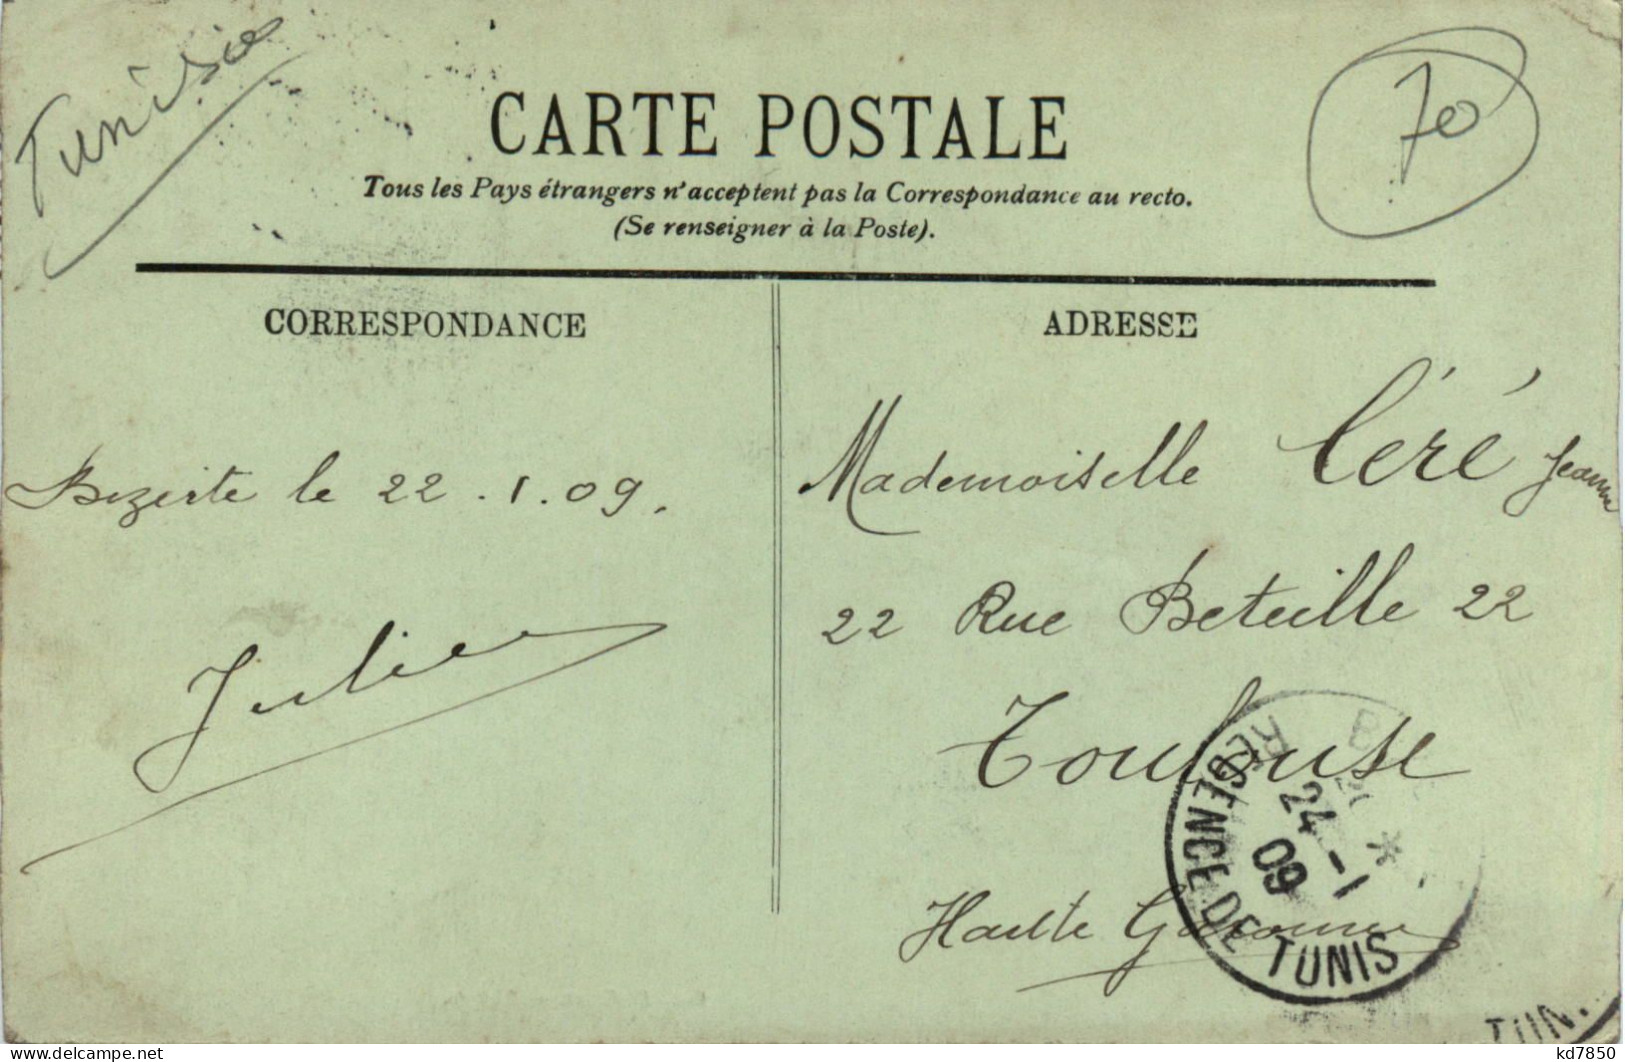 Tunisie
70
CARTE POSTALE
Tous les Pays étrangers n'acceptent pas la Correspondance au recto.
(Se renseigner à la Poste).
CORRESPONDANCE
Bizerte le 22.1.09.
Julien
ADRESSE
Mademoiselle Céré Jeanne
22 Rue Beteille 22
Toulouse
Haulte Garonne
24 -1
09
RÉGENCE DE TUNIS
TUN.
kd7850